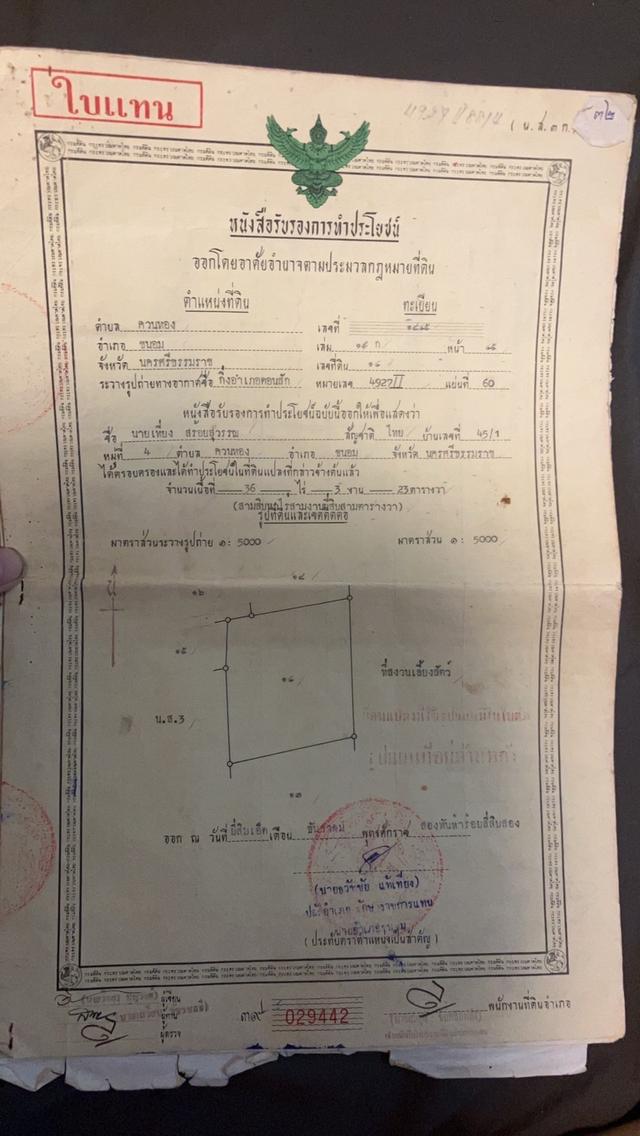 ใบแทน
(น.ส.๓ก.)
๓๒
หนังสือรับรองการทำประโยชน์
ออกโดยอาศัยอำนาจตามประมวลกฎหมายที่ดิน
ตำแหน่งที่ดิน ทะเบียน
ตำบล ควนทอง เลขที่
อำเภอ ขนอม เล่ม ๑๕ ก หน้า
จังหวัด นครศรีธรรมราช เลขที่ดิน
ระวางรูปถ่ายทางอากาศชื่อ กิ่งอำเภอดอนสัก หมายเลข 4927 II แผ่นที่ 60
หนังสือรับรองการทำประโยชน์ฉบับนี้ออกให้เพื่อแสดงว่า
ชื่อ นายเที่ยง สร้อยสุวรรณ สัญชาติ ไทย บ้านเลขที่ 45/1
หมู่ที่ 4 ตำบล ควนทอง อำเภอ ขนอม จังหวัด นครศรีธรรมราช
ได้ครอบครองและได้ทำประโยชน์ในที่ดินแปลงที่กล่าวข้างต้นแล้ว
จำนวนเนื้อที่ 36 ไร่ 3 งาน 23 ตารางวา
(สามสิบหกไร่สามงานยี่สิบสามตารางวา)
รูปที่ดินและเขตติดต่อ
มาตราส่วนระวางรูปถ่าย ๑: 5000 มาตราส่วน ๑: 5000
๑๔
๑๖
๑๕
ที่สงวนเลี้ยงสัตว์
น.ส.3
๑๓
ออก ณ วันที่ ยี่สิบเอ็ด เดือน ธันวาคม พุทธศักราช สองพันห้าร้อยยี่สิบสอง
(นายธวัชชัย แท้เที่ยง)
ปลัดอำเภอ รักษาราชการแทน
นายอำเภอขนอม
(ประทับตราตำแหน่งเป็นสำคัญ)
ผู้เขียน
ผู้ทาน
ผู้ตรวจ
029442
พนักงานที่ดินอำเภอ